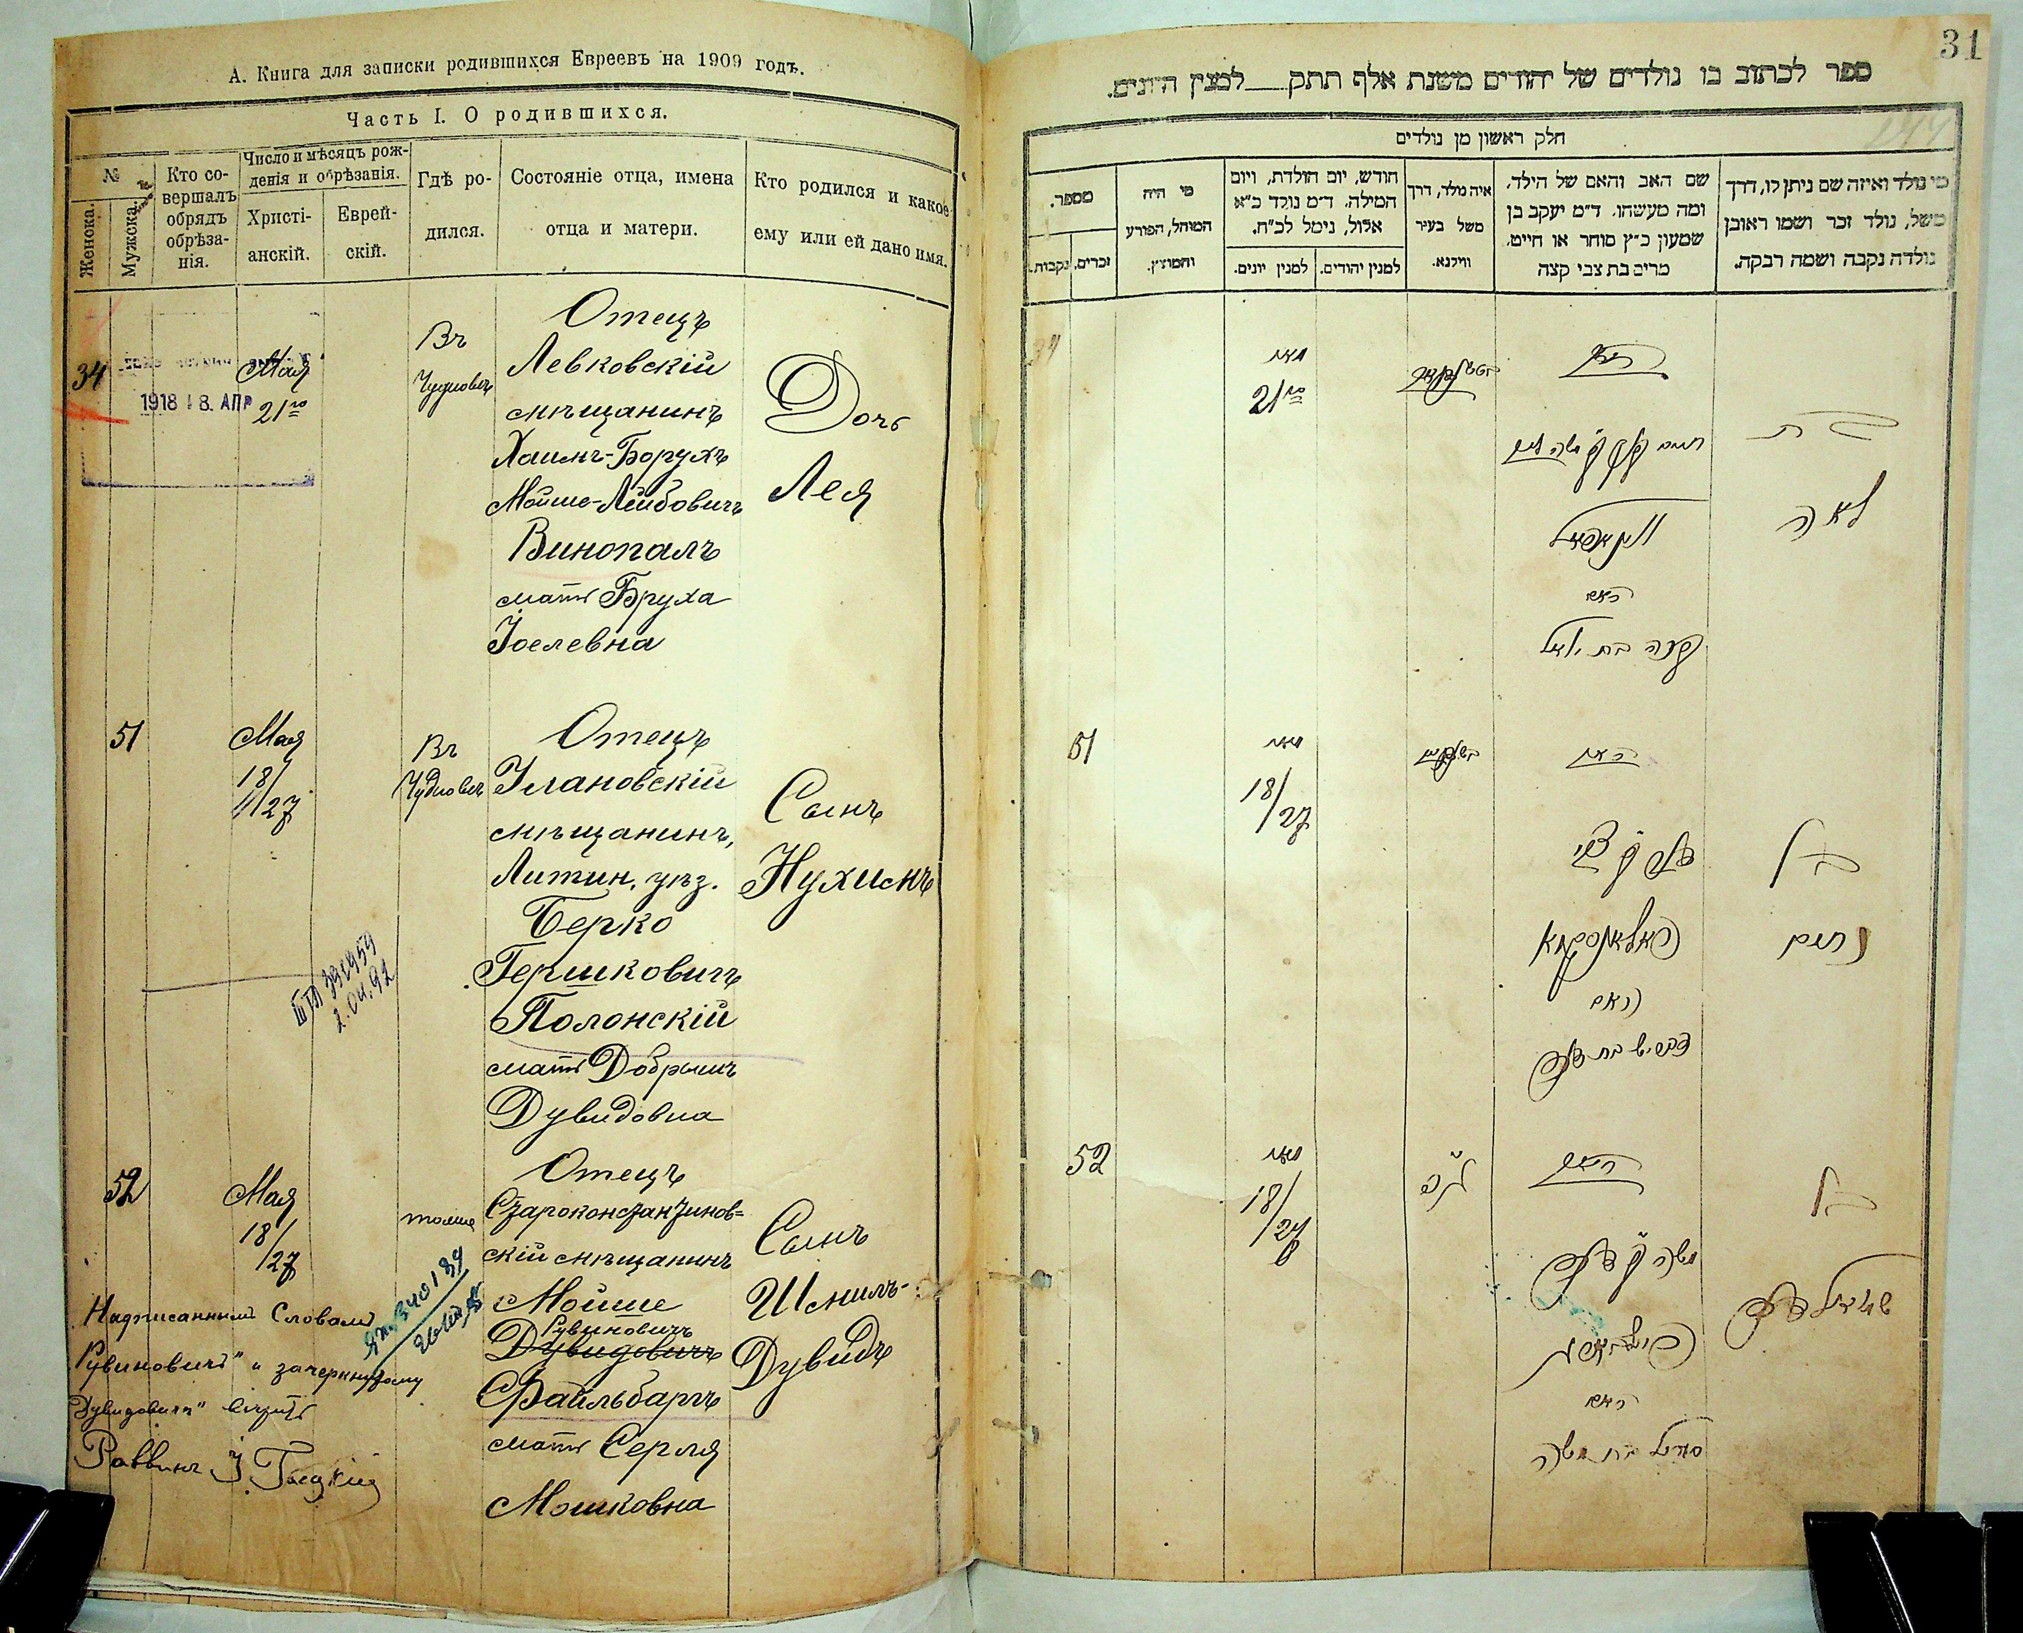 А. Книга для записки родившихся Евреевъ на 1909 годъ.
Часть I. О родившихся.
№
Женска.
Мужска.
Кто со-
вершалъ
обрядъ
обрѣза-
нія.
Число и мѣсяцъ рож-
денія и обрѣзанія.
Христі-
анскій.
Еврей-
скій.
Гдѣ ро-
дился.
Состояніе отца, имена
отца и матери.
Кто родился и какое
ему или ей дано имя.
34
1918 18. АПР
Мая
21го
Въ
Чудновѣ
Отецъ
Левковскій
мѣщанинъ
Хаимъ-Борухъ
Мойше-Лейбовичъ
Винопалъ
мать Бруха
Іоелевна
Дочь
Лея
51
Мая
18/
27
Въ
Чудновѣ
Отецъ
Улановскій
мѣщанинъ,
Литин. уѣз.
Берко
Гершковичъ
Полонскій
мать Добрышъ
Дувидовна
Сынъ
Нухимъ
2.04.92
52
Мая
18/
27
тоже
Отецъ
Староконстантинов=
скій мѣщанинъ
Мойше
Рувиновичъ
Дувидовичъ
Файльбаргъ
мать Серля
Мошковна
Сынъ
Шмилъ-
Дувидъ
Надписанному Словамъ
Рувиновичъ" и зачеркнутому
Дувидовичъ" вѣрить
Раввинъ
31
ספר לכתוב בו נולדים של יהודים משנת אלף תתק___למנין היונים.
חלק ראשון מן נולדים
מספר.
נקבות.
זכרים.
מי היה
המוהל, הפורע
והמוצץ.
חודש, יום הולדת, ויום
המילה. ד״מ נולד כ״א
אלול, נימל לכ״ח.
למנין יונים.
למנין יהודים.
איה נולד, דרך
משל בעיר
ווילנא.
שם האב והאם של הילד,
ומה מעשהו. ד״מ יעקב בן
שמעון כ״ץ סוחר או חייט.
מרים בת צבי קצה
מי נולד ואיזה שם ניתן לו, דרך
משל, נולד זכר ושמו ראובן
נולדה נקבה ושמה רבקה.
34
מאי
21го
האב
בת
לאה
האם
51
מאי
18/
27
האב
בן
נחום
האם
52
מאי
18/
27
האב
בן
האם